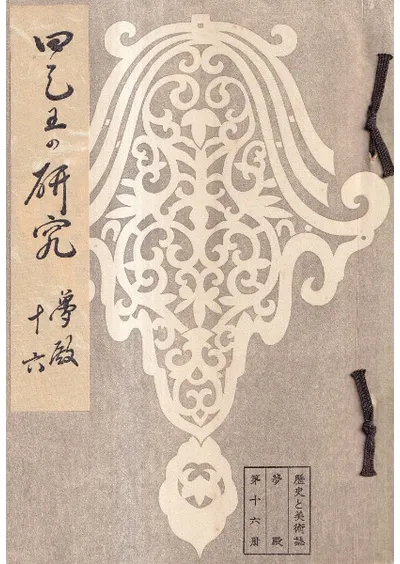 四天王の研究
夢殿
十六
歴史と美術誌
夢殿
第十六册